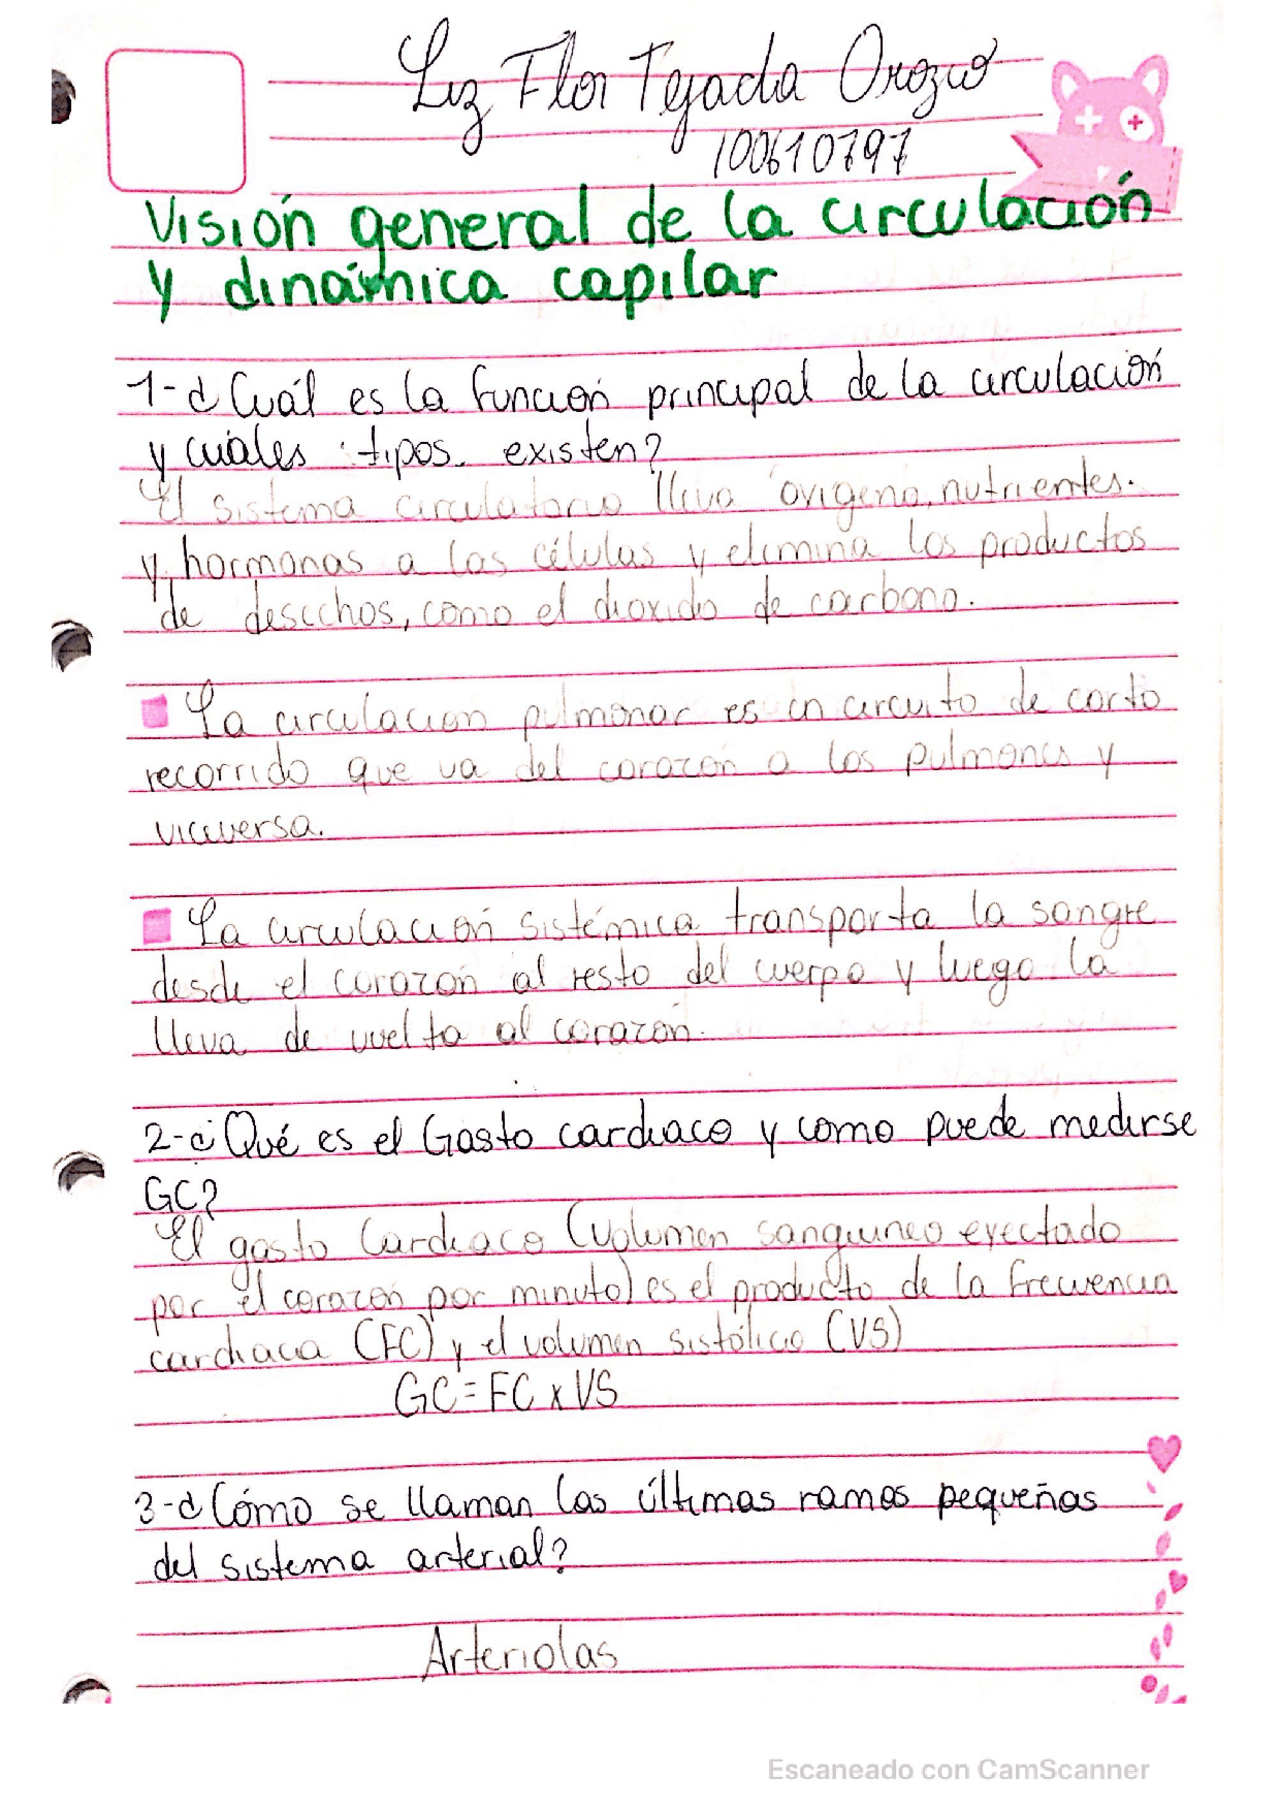 Luz Flor Tejada Orozco
100610797
Visión general de la circulación
y dinámica capilar
1-¿Cuál es la función principal de la circulación
y cuáles tipos. existen?
El sistema circulatorio lleva oxigeno, nutrientes.
y hormonas a las células y elimina los productos
de desechos, como el dioxido de carbono.
La circulación pulmonar es un circuito de corto
recorrido que va del corazón a los pulmones y
viceversa.
La circulación sistémica transporta la sangre
desde el corazón al resto del cuerpo y luego la
lleva de vuelta al corazón.
2-¿Qué es el Gasto cardiaco y como puede medirse
GC?
El gasto Cardiaco (Volumen sanguineo eyectado
por el corazón por minuto) es el producto de la frecuencia
cardiaca (FC) y el volumen sistólico (VS)
GC=FC x VS
3-¿Cómo se llaman las últimas ramas pequeñas
del sistema arterial?
Arteriolas
Escaneado con CamScanner